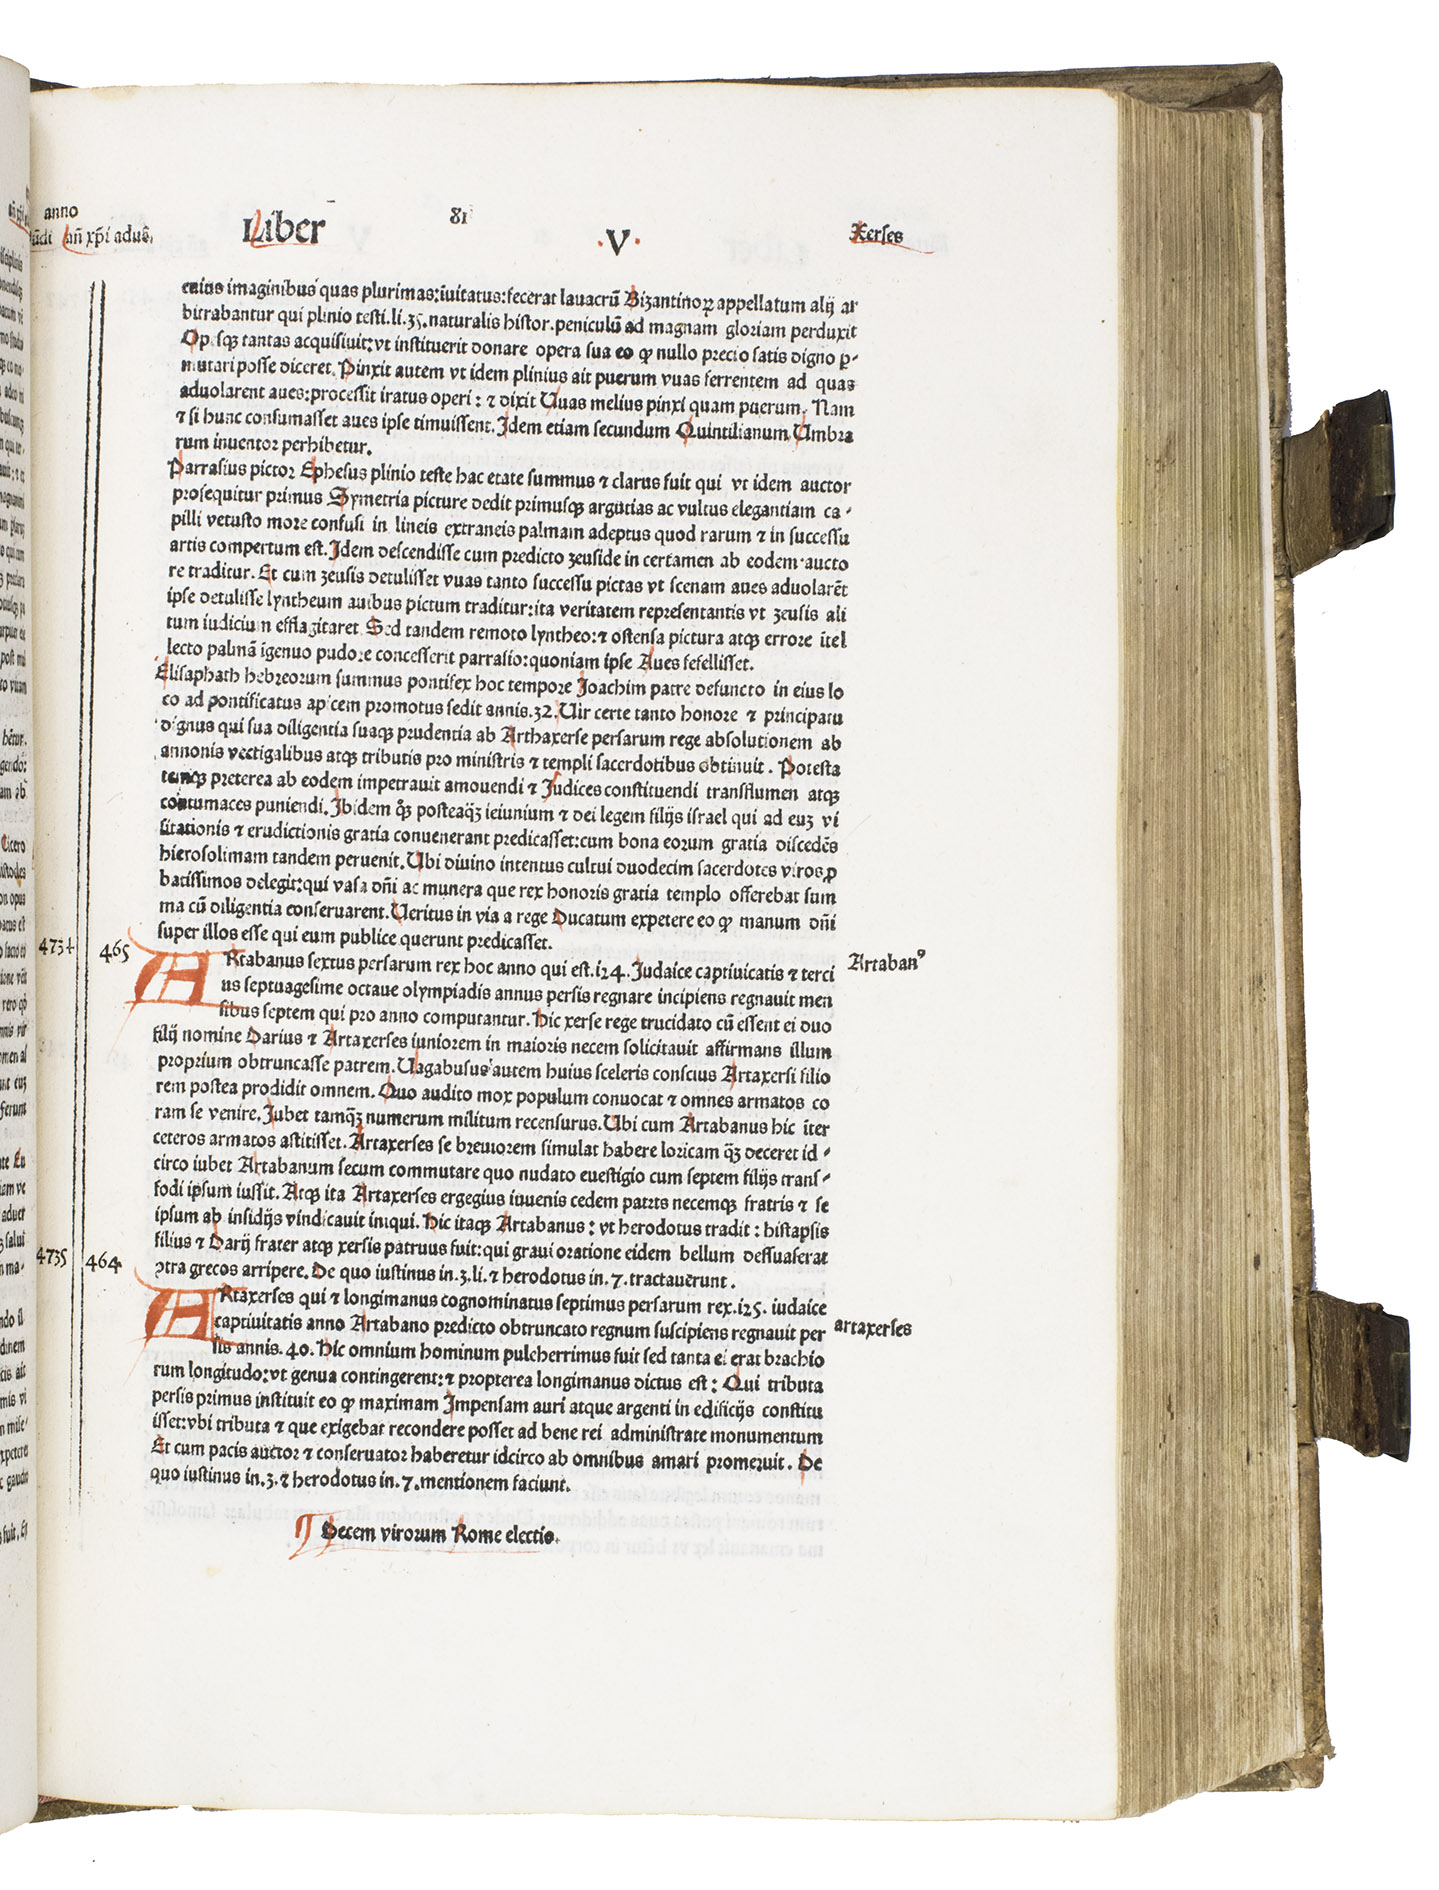 anno
mũdi añ xp̃i adue̅.
Liber
81
.V.
Xerses
cuius imaginibus quas plurimas:ĩuitatus:fecerat lauacrũ Bizantinoꝝ appellatum alij ar
bitrabantur qui plinio testi.li.35.naturalis histor.peniculũ ad magnam gloriam perduxit
Opesqꝫ tantas acquisiuit:vt instituerit donare opera sua eo ꝙ nullo precio satis digno ꝑ-
mutari posse diceret. Pinxit autem vt idem plinius ait puerum vuas ferrentem ad quas
aduolarent aues:processit iratus operi: ⁊ dixit Uuas melius pinxi quam puerum. Nam
⁊ si hunc consumasset aues ipse timuissent. Idem etiam secundum Quintilianum Umbra
rum inuentor perhibetur.
Parrasius pictor Ephesus plinio teste hac etate summus ⁊ clarus fuit qui vt idem auctor
prosequitur primus Symetria picture dedit primusqꝫ argutias ac vultus elegantiam ca-
pilli vetusto more confusi in lineis extraneis palmam adeptus quod rarum ⁊ in successu
artis compertum est. Idem descendisse cum predicto zeuside in certamen ab eodem aucto
re traditur. Et cum zeusis detulisset vuas tanto successu pictas vt scenam aues aduolarẽt
ipse detulisse lyntheum auibus pictum traditur:ita veritatem representantis vt zeusis ali
tum iudicium efflagitaret Sed tandem remoto lyntheo:⁊ ostensa pictura atqꝫ errore ĩtel
lecto palmã ĩgenuo pudore concesserit parrasio:quoniam ipse Aues fefellisset.
Elisaphath hebreorum summus pontifex hoc tempore Joachim patre defuncto in eius lo
co ad pontificatus apicem promotus sedit annis.32.Uir certe tanto honore ⁊ principatu
dignus qui sua diligentia suaqꝫ prudentia ab Arthaxerse persarum rege absolutionem ab
annonis vectigalibus atqꝫ tributis pro ministris ⁊ templi sacerdotibus obtinuit. Potesta
temqꝫ preterea ab eodem impetrauit amouendi ⁊ Judices constituendi transflumen atqꝫ
contumaces puniendi. Ibidem qꝫ̃ posteaqꝫ̃ ieiunium ⁊ dei legem filijs israel qui ad euꝫ vi
sitationis ⁊ erudictionis gratia conuenerant predicasset:cum bona eorum gratia discedẽs
hierosolimam tandem peruenit. Ubi diuino intentus cultui duodecim sacerdotes viros ꝓ
batissimos delegit:qui vasa dñi ac munera que rex honoris gratia templo offerebat sum
ma cũ diligentia conseruarent. Ueritus in via a rege Ducatum expetere eo ꝙ manum dñi
super illos esse qui eum publice querunt predicasset.
4734 465 ARtabanus sextus persarum rex hoc anno qui est.124.Judaice captiuicatis ⁊ terci Artabanꝰ
us septuagesime octaue olympiadis annus persis regnare incipiens regnauit men
sibus septem qui pro anno computantur. Hic xerse rege trucidato cũ essent ei duo
filij nomine Darius ⁊ Artaxerses iuniorem in maioris necem solicitauit affirmans illum
proprium obtruncasse patrem. Uagabusus autem huius sceleris conscius Artaxersi filio
rem postea prodidit omnem. Quo audito mox populum conuocat ⁊ omnes armatos co
ram se venire. Jubet tamqꝫ̃ numerum militum recensurus. Ubi cum Artabanus hic ĩter
ceteros armatos astitisset. Artaxerses se breuiorem simulat habere loricam qꝫ̃ deceret id-
circo iubet Artabanum secum commutare quo nudato euestigio cum septem filijs trans-
fodi ipsum iussit. Atqꝫ ita Artaxerses ergegius iuuenis cedem patris necemqꝫ fratris ⁊ se
ipsum ab insidijs vindicauit iniqui. Hic itaqꝫ Artabanus: vt herodotus tradit: histapsis
filius ⁊ Darij frater atqꝫ xersis patruus fuit:qui graui oratione eidem bellum dessuaserat
ꝯtra grecos arripere. De quo iustinus in.3.li.⁊ herodotus in.7.tractauerunt.
4735 464 ARtaxerses qui ⁊ longimanus cognominatus septimus persarum rex.125. iudaice
captiuitatis anno Artabano predicto obtruncato regnum suscipiens regnauit per artaxerses
sis annis.40.Hic omnium hominum pulcherrimus fuit sed tanta ei erat brachio
rum longitudo:vt genua contingerent:⁊ propterea longimanus dictus est: Qui tributa
persis primus instituit eo ꝙ maximam Impensam auri atque argenti in edificijs constitu
isset:vbi tributa ⁊ que exigebat recondere posset ad bene rei administrate monumentum
Et cum pacis auctor ⁊ conseruator haberetur idcirco ab omnibus amari promeruit. De
quo iustinus in.3.⁊ herodotus in.7.mentionem faciunt.
¶ Decem virorum Rome electio.